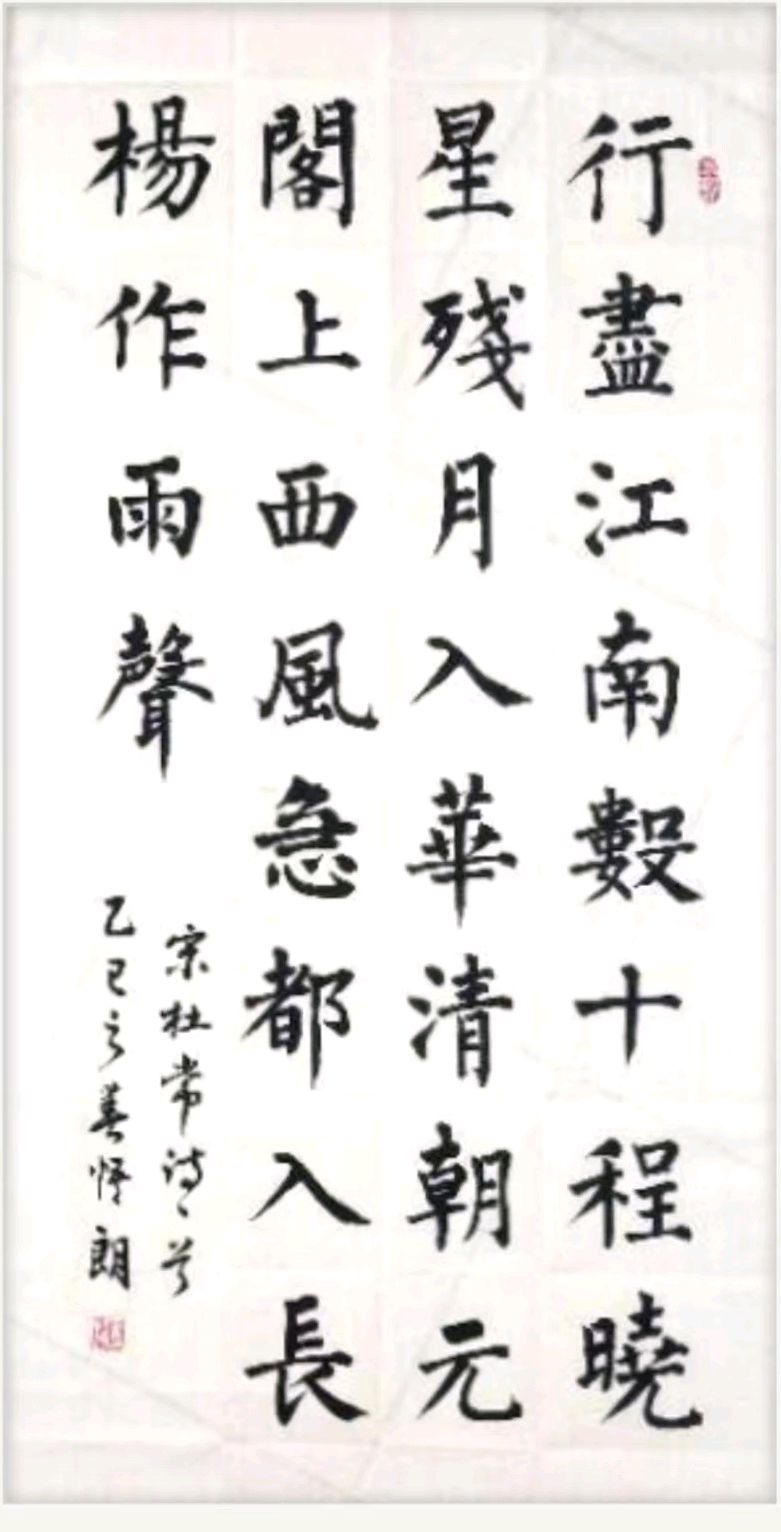 行盡江南數十程曉
星殘月入華清朝元
閣上西風急都入長
楊作雨聲
宋杜常詩一首
乙巳之春悟朗